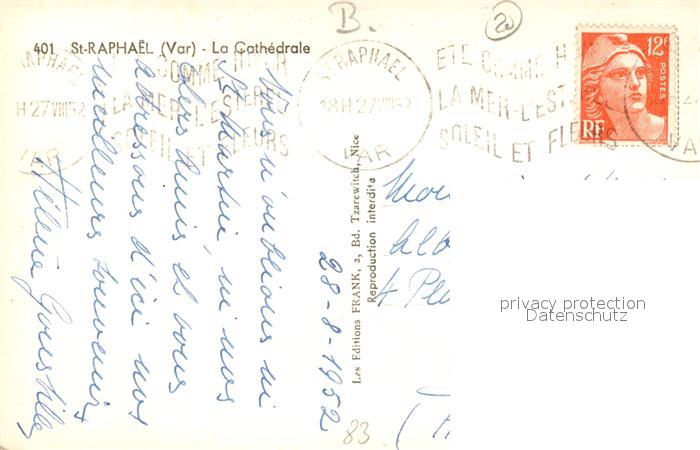 B.
401 St-RAPHAËL (Var) - La Cathédrale
ST RAPHAEL
18H 27 VIII 52
VAR
ETE COMME HIVER
LA MER L'EST EREL
SOLEIL ET FLEURS
ST RAPHAEL
18H 27 VIII 52
VAR
ETE COMME H
LA MER-L'EST
SOLEIL ET FLEURS
12F
POSTES
RF
VA
Nous n'oublions ni
St Martin, ni nos
chers amis et vous
adressons d'ici nos
meilleurs souvenirs
Hélène
28-8-1952
Les Editions FRANK, 2, Bd. Tzarewitch, Nice
Reproduction interdite
4
83
privacy protection
Datenschutz